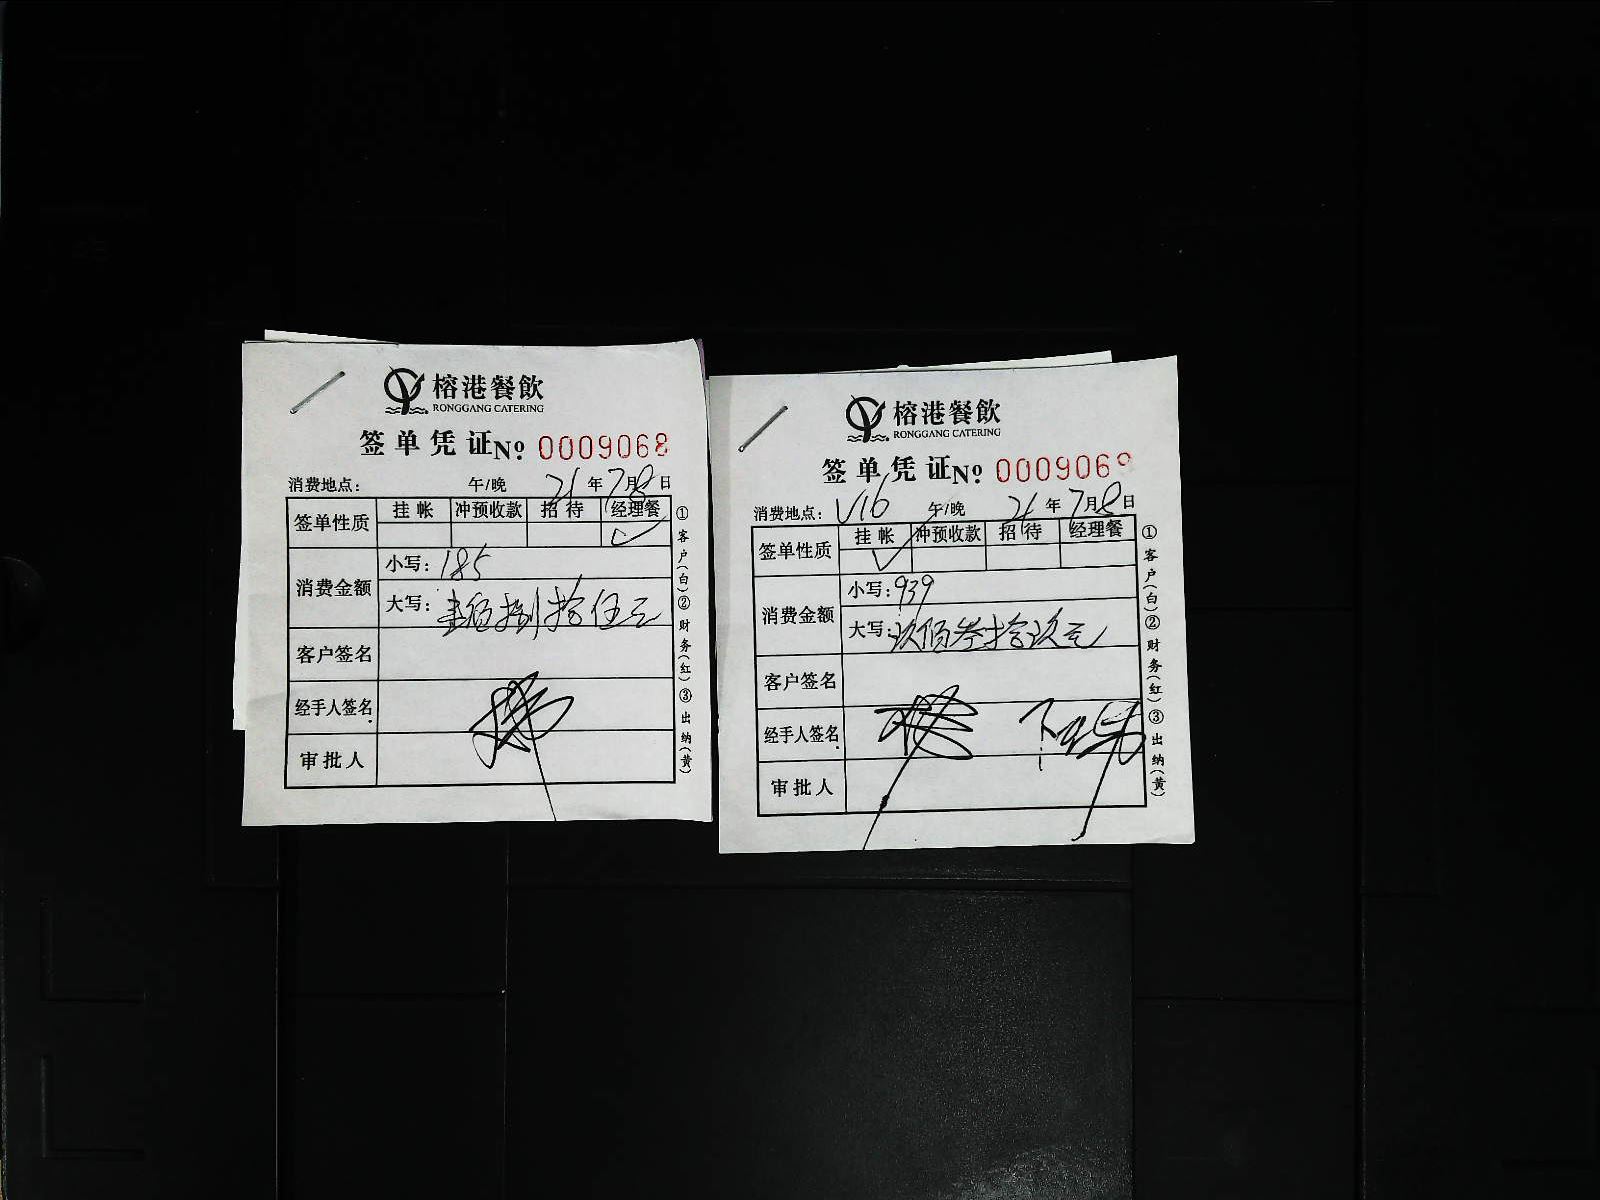 榕港餐飲
RONGGANG CATERING
签单凭证№ 0009068
消费地点： 午/晚 21年7月8日
签单性质 挂帐 冲预收款 招待 经理餐
✓
消费金额 小写：185
大写：壹佰捌拾伍元
客户签名
经手人签名
审批人
①客户(白)②财务(红)③出纳(黄)
榕港餐飲
RONGGANG CATERING
签单凭证№ 0009069
消费地点：V16 午/晚 21年7月8日
签单性质 挂帐 冲预收款 招待 经理餐
✓
消费金额 小写：939
大写：玖佰叁拾玖元
客户签名
经手人签名
审批人
①客户(白)②财务(红)③出纳(黄)